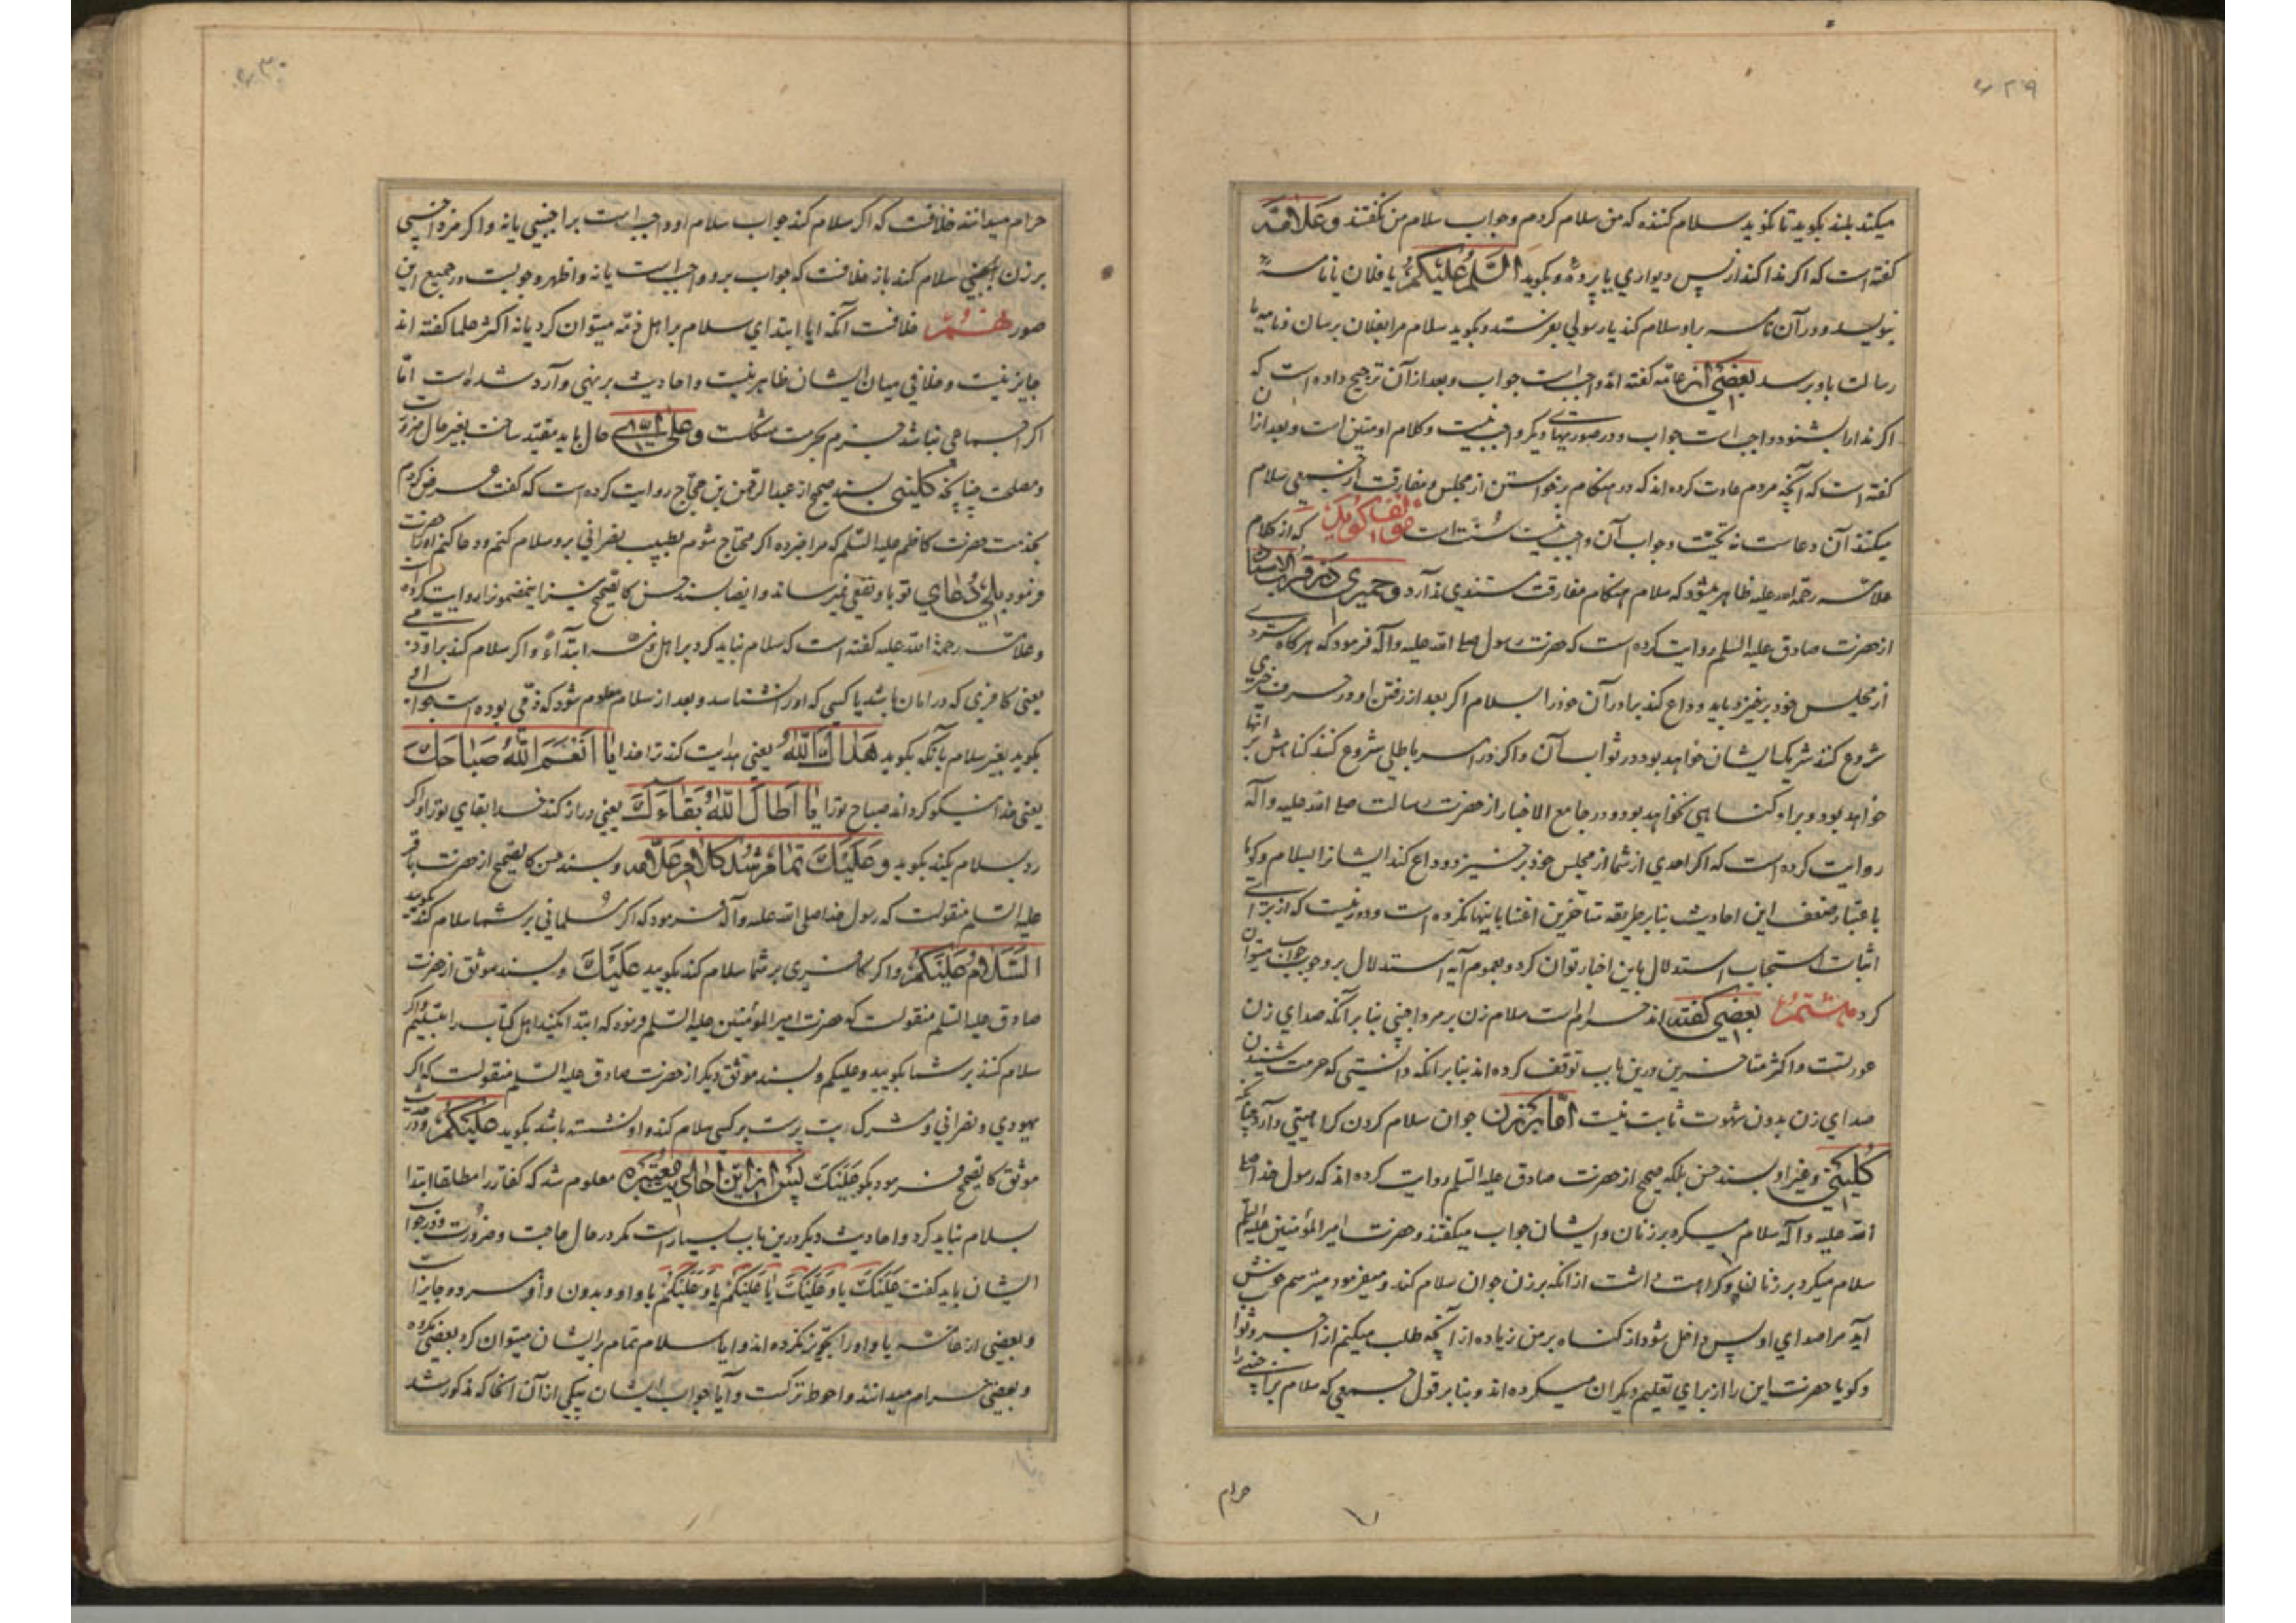 ۶۲۹
میکند بلند بکوید تا نکوید سلام کننده که من سلام کردم و جواب سلام من نکفتند و علامه
کفته است که اکر ندا کند از پس دیواری یا پرده و بکوید السلم علیکم یا فلان یا نامه
بنویسد و در آن نامه بر او سلام کند یا رسولی بفرستد و بکوید سلام مرا بفلان برسان و نامه یا
رسالت باو برسد بعضی از عامه کفته اند واجب است جواب و بعد از آن ترجیح داده است که
اکر ندا را بشنود واجب است جواب و در صورتهای دیکر واجب نیست و کلام او متین است و بعد ازان
کفته است که آنچه مردم عادت کرده اند که در هنکام برخواستن از مجلس و مفارقت از جمعی سلام
میکنند آن دعاست نه تحیت و جواب آن واجب نیست سنت است مؤلف کوید که از کلام
علامه رحمة الله علیه ظاهر میشود که سلام هنکام مفارقت سنتی ندارد و حمیری در قرب الاسناد
از حضرت صادق علیه السلم روایت کرده است که حضرت رسول صلی الله علیه وآله فرمود که هرکاه مردی
از مجلس خود برخیزد باید وداع کند برادران خود را بسلام اکر بعد از رفتن او در حرف خیری
شروع کنند شریک ایشان خواهد بود در ثواب آن و اکر در امر باطلی شروع کنند کناهش بر انها
خواهد بود و بر او کناهی نخواهد بود و در جامع الاخبار از حضرت رسالت صلی الله علیه وآله
روایت کرده است که اکر احدی از شما از مجلس خود برخیزد و وداع کند ایشانرا بسلام و کویا
باعتبار ضعف این احادیث بنابر طریقه متاخرین اعتنا باینها نکرده است و دور نیست که از برای
اثبات استحباب استدلال باین اخبار توان کرد و بعموم آیه استدلال بر وجوب جواب میتوان
کرد هشتم بعضی کفته اند حرام است سلام زن بر مرد اجنبی بنا بر آنکه صدای زن
عورتست و اکثر متاخرین درین باب توقف کرده اند بنابر آنکه دانستی که حرمت شنیدن
صدای زن بدون شهوت ثابت نیست اما بر زن جوان سلام کردن کراهیتی دارد چنانکه
کلینی و غیر او بسند حسن بلکه صحیح از حضرت صادق علیه السلم روایت کرده اند که رسول خدا صلی
الله علیه وآله سلام میکرد بر زنان و ایشان جواب میکفتند و حضرت امیر المؤمنین علیه السلم
سلام میکرد بر زنان و کراهت داشت از انکه بر زن جوان سلام کند و میفرمود میترسم خوش
آید مرا صدای او پس داخل شود از کناه بر من زیاده از آنچه طلب میکنم از اجر و ثواب
و کویا حضرت این را از برای تعلیم دیکران میکرده اند و بنا بر قول جمعی که سلام بر اجنبی را
حرام
۶۳۰
حرام میدانند خلافست که اکر سلام کند جواب سلام او واجب است بر اجنبی یا نه و اکر مرد اجنبی
بر زن اجنبی سلام کند باز خلافست که جواب برو واجب است یا نه و اظهر وجوبست در جمیع این
صور نهم خلافست آنکه ایا ابتدای سلام بر اهل ذمه میتوان کرد یا نه اکثر علما کفته اند
جایز نیست و خلافی میان ایشان ظاهر نیست و احادیث بر نهی وارد شده است اما
اکر اجماعی نباشد جزم بحرمت مشکلست و علی ای حال باید مقید ساخت بغیر حال ضرورت
و مصلحت چنانچه کلینی بسند صحیح از عبد الرحمن بن حجاج روایت کرده است که کفت عرض کردم
بخدمت حضرت کاظم علیه السلم که مرا خبر ده اکر محتاج شوم بطبیب نصرانی برو سلام کنم و دعا کنم او را حضرت
فرمود بلی دعای تو باو نفعی نمیرساند و ایضا بسند حسن کالصحیح نیز این مضمونرا روایت کرده است
و علامه رحمة الله علیه کفته است که سلام نباید کرد بر اهل ذمه ابتداء و اکر سلام کند بر او ذمی
یعنی کافری که در امان باشد یا کسی که او را نشناسد و بعد از سلام معلوم شود که ذمی بوده است جواب او
بکوید بغیر سلام بآنکه بکوید هداك الله یعنی هدایت کند ترا خدا یا انعم الله صباحك
یعنی خدا نیکو کرداند صباح ترا یا اطال الله بقاءك یعنی دراز کند خدا بقای ترا و اکر
رد سلام بکند بکوید و علیك تمام شد کلام علامه و بسند حسن کالصحیح از حضرت باقر
علیه السلم منقولست که رسول خدا صلی الله علیه وآله فرمود که اکر مسلمانی بر شما سلام کند بکویید
السلام علیکم و اکر کافری بر شما سلام کند بکویید علیك و بسند موثق از حضرت
صادق علیه السلم منقولست که حضرت امیر المؤمنین علیه السلم فرمود که ابتدا مکنید اهل کتاب را بتسلیم و اکر
سلام کنند بر شما بکویید و علیکم و بسند موثق دیکر از حضرت صادق علیه السلم منقولست که اکر
یهودی و نصرانی و مشرک بت پرست بر کسی سلام کند و او نشسته باشد بکوید علیکم و در حدیث
موثق کالصحیح فرمود بکو علیك پس از این احادیث معتبره معلوم شد که کفار را مطلقا ابتدا
بسلام نباید کرد و احادیث دیکر درین باب بسیار است مکر در حال حاجت و ضرورت و در جواب
ایشان باید کفت علیك یا و علیك یا علیکم یا و علیکم با واو و بدون واو هر دو جایز است
و بعضی از عامه با واو را تجویز نکرده اند و ایا سلام تمام بر ایشان میتوان کرد بعضی مکروه
و بعضی حرام میدانند و احوط ترکست و آیا جواب ایشان بیکی از آن انحا که مذکور شد